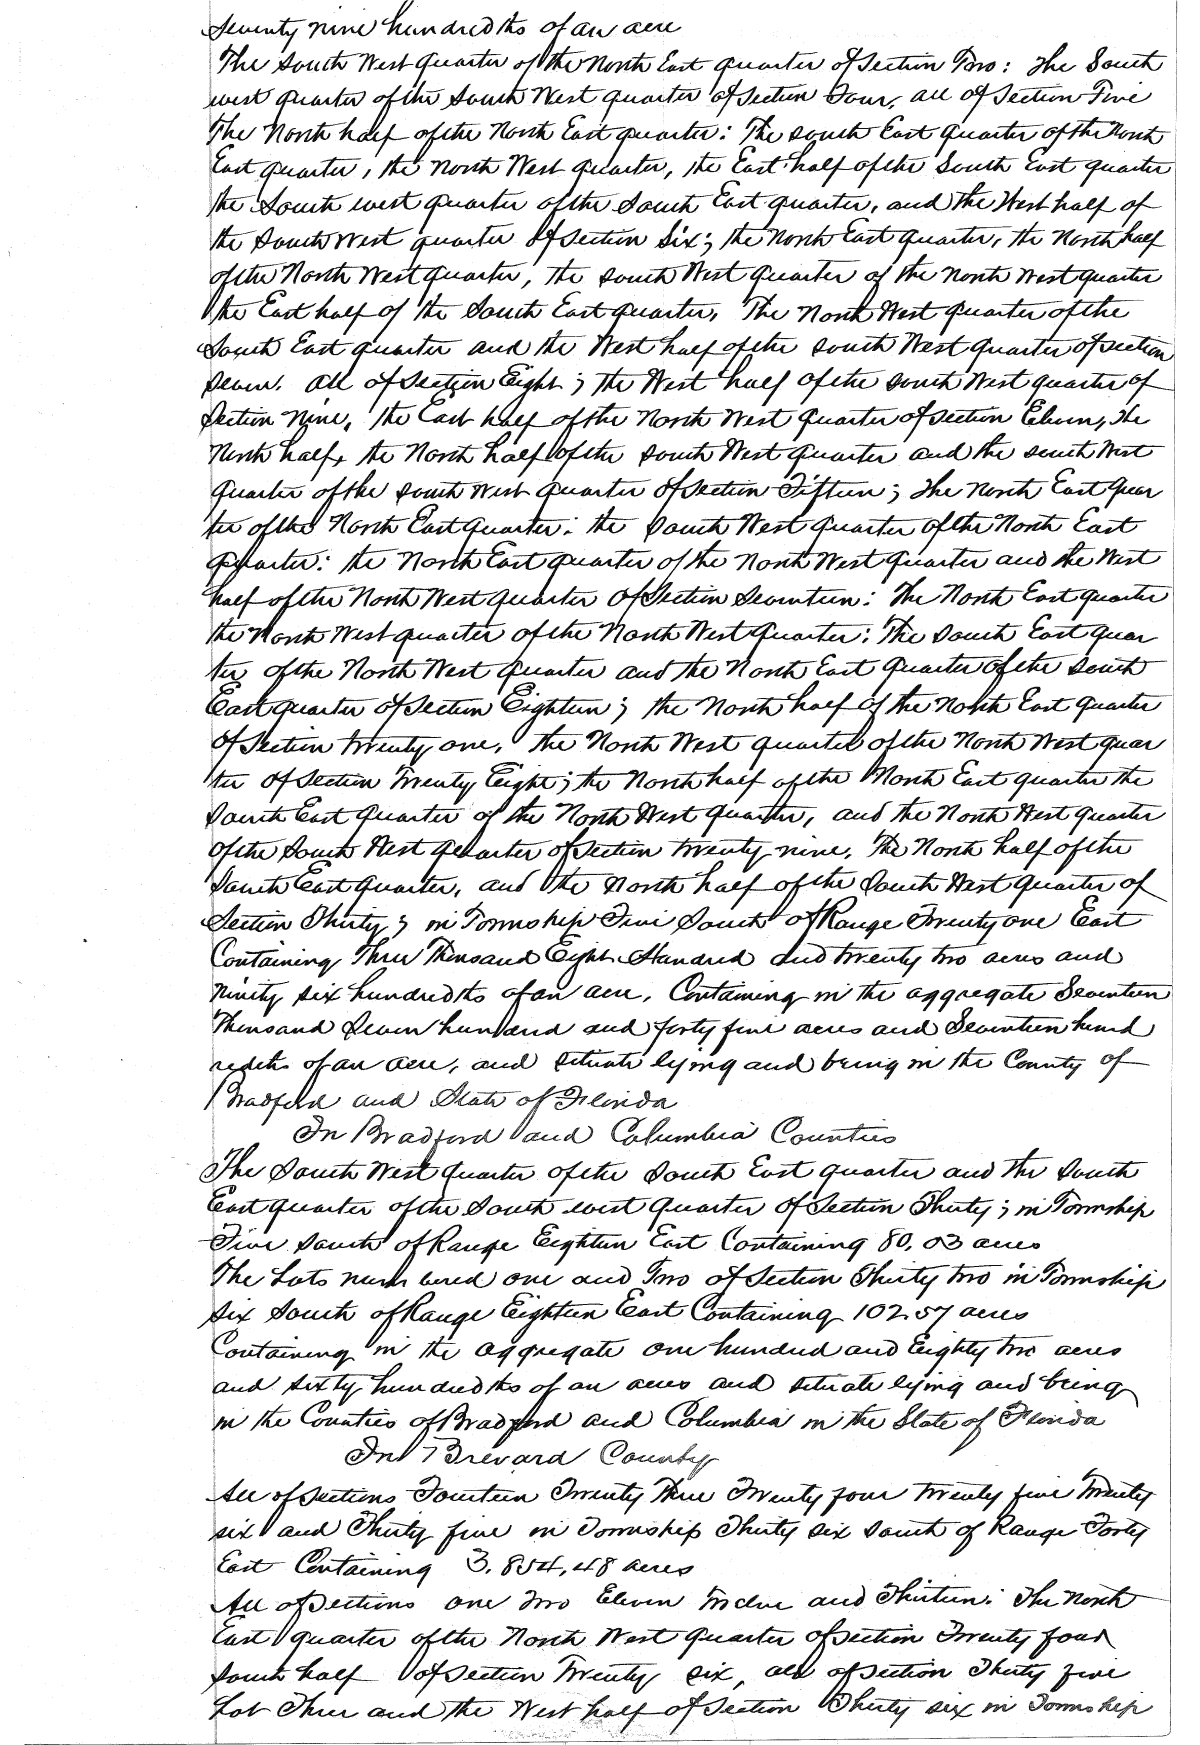 Seventy nine hundredths of an acre
The South West quarter of the North East quarter of Section Two: The South
west quarter of the South West quarter of Section Four, all of Section Five
The North half of the North East quarter: The South East quarter of the North
East quarter, the North West quarter, the East half of the South East quarter
the South west quarter of the South East quarter, and the West half of
the South West quarter of Section Six; the North East quarter, the North half
of the North West quarter, the South West quarter of the North West quarter
the East half of the South East quarter, The North West quarter of the
South East quarter and the West half of the South West quarter of Section
Seven. All of Section Eight; the West half of the South West quarter of
Section Nine, the East half of the North West quarter of Section Eleven, The
North half, the North half of the South West quarter and the South West
quarter of the South West quarter of Section Fifteen; The North East quar
ter of the North East quarter: the South West quarter of the North East
quarter: the North East quarter of the North West quarter and the West
half of the North West quarter of Section Seventeen: The North East quarter
the North West quarter of the North West quarter: The South East quar
ter of the North West quarter and the North East quarter of the South
East quarter of Section Eighteen; the North half of the North East quarter
of Section twenty one, the North West quarter of the North West quar
ter of Section Twenty Eight; the North half of the North East quarter the
South East quarter of the North West quarter, and the North West quarter
of the South West quarter of Section twenty nine, The North half of the
South East quarter, and the North half of the South West quarter of
Section Thirty; in Township Five South of Range Twenty one East
Containing Three Thousand Eight Hundred and twenty two acres and
Ninety six hundredths of an acre, Containing in the aggregate Seventeen
Thousand Seven hundred and forty five acres and Seventeen hund
redths of an acre, and situate lying and being in the County of
Bradford and State of Florida
In Bradford and Columbia Counties
The South West quarter of the South East quarter and the South
East quarter of the South west quarter of Section Thirty; in Township
Five South of Range Eighteen East Containing 80,03 acres
The Lots numbered one and Two of Section Thirty two in Township
Six South of Range Eighteen East Containing 102.57 acres
Containing in the aggregate one hundred and Eighty two acres
and sixty hundredths of an acres and situate lying and being
in the Counties of Bradford and Columbia in the State of Florida
In Brevard County
All of Sections Fourteen Twenty Three Twenty four twenty five Twenty
six and Thirty five in Township Thirty six South of Range Forty
East Containing 3,854,48 acres
All of Sections one Two Eleven Twelve and Thirteen: The North
East quarter of the North West quarter of Section Twenty four
South half of Section Twenty six, all of Section Thirty five
Lot Three and the West half of Section Thirty six in Township